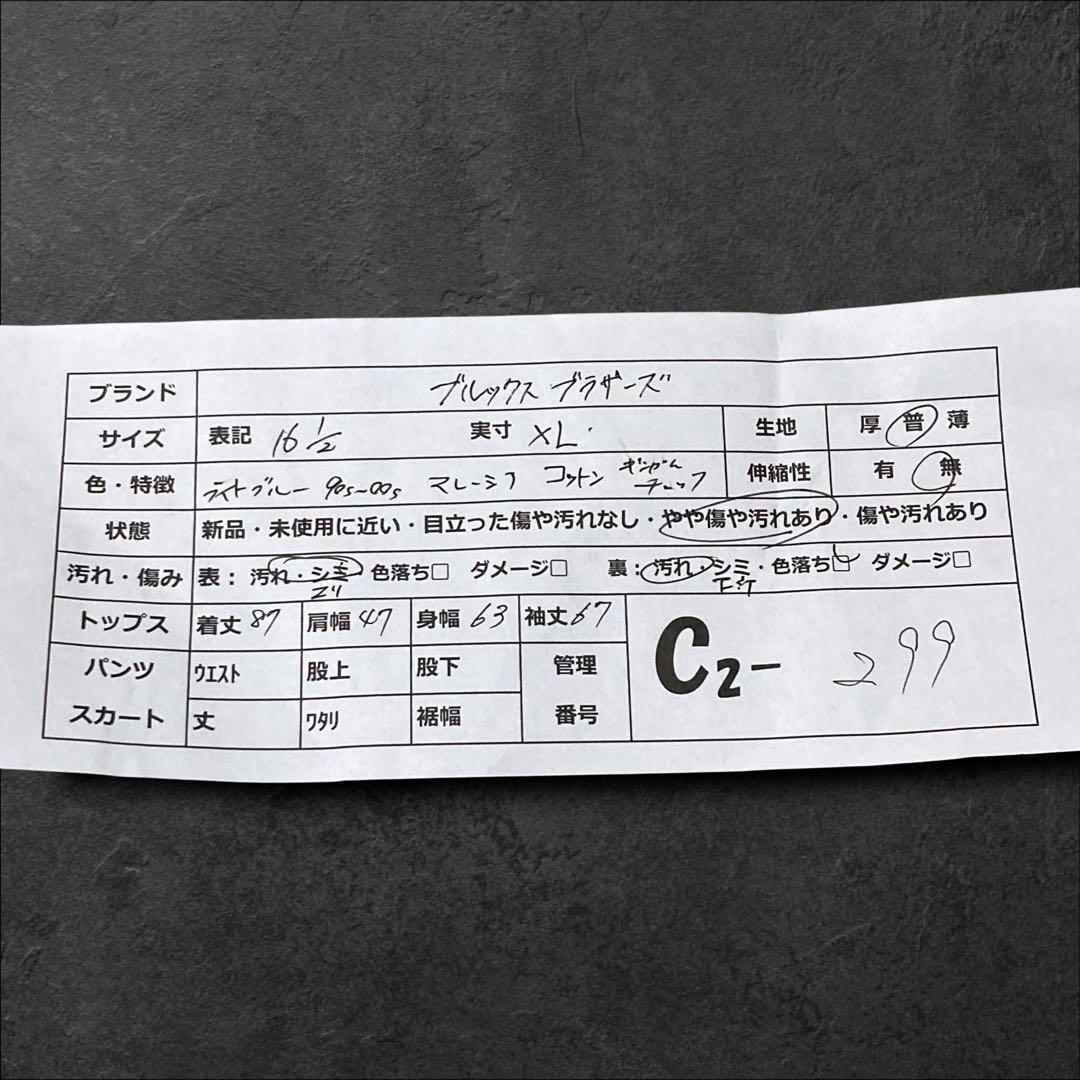 ブランド ブルックス ブラザーズ
サイズ 表記 16 1/2 実寸 XL 生地 厚 普 薄
色・特徴 ライトブルー 90s~00s マレーシア コットン ギンガムチェック 伸縮性 有 無
状態 新品・未使用に近い・目立った傷や汚れなし・やや傷や汚れあり・傷や汚れあり
汚れ・傷み 表: 汚れ・シミ・色落ち□ ダメージ□ 裏: 汚れ・シミ・色落ち□ ダメージ□
エリ
トップス 着丈 87 肩幅 47 身幅 63 袖丈 67
パンツ ウエスト 股上 股下 管理 C2- 299
スカート 丈 ワタリ 裾幅 番号